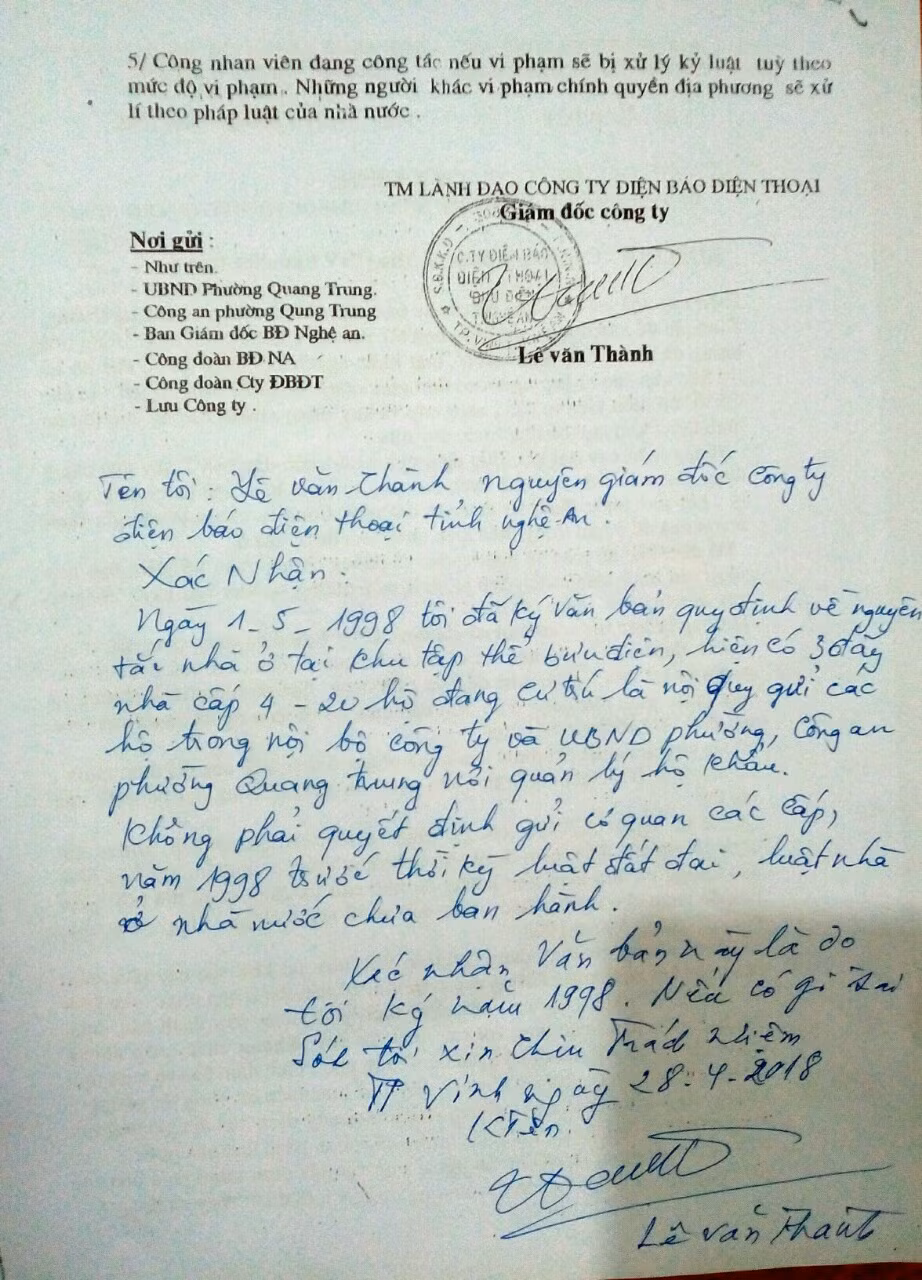 5/ Công nhan viên đang công tác nếu vi phạm sẽ bị xử lý kỷ luật tuỳ theo
mức độ vi phạm . Những người khác vi phạm chính quyền địa phương sẽ xử
lí theo pháp luật của nhà nước .
TM LÃNH ĐẠO CÔNG TY ĐIỆN BÁO ĐIỆN THOẠI
Giám đốc công ty
C.TY ĐIỆN BÁO
ĐIỆN THOẠI
Lê văn Thành
Nơi gửi :
- Như trên.
- UBND Phường Quang Trung.
- Công an phường Qung Trung
- Ban Giám đốc BĐ Nghệ an.
- Công đoàn BĐ NA
- Công đoàn Cty ĐBĐT
- Lưu Công ty .
Tên tôi : Lê văn Thành nguyên giám đốc Công ty
điện báo điện thoại tỉnh nghệ An .
Xác Nhận .
Ngày 1_5_1998 tôi đã ký văn bản quy định về nguyên
tắc nhà ở tại khu tập thể bưu điện, hiện có 3 dãy
nhà cấp 4 - 20 hộ đang cư trú là nội quy gửi các
hộ trong nội bộ công ty và UBND phường, Công an
phường Quang trung nơi quản lý hộ khẩu.
Không phải quyết định gửi cơ quan các cấp,
năm 1998 trước thời kỳ luật đất đai, luật nhà
ở nhà nước chưa ban hành .
Xác nhận Văn bản này là do
tôi ký năm 1998 . Nếu có gì sai
Sót tôi xin chịu Trách nhiệm
TP Vinh ngày 28-4-2018
Ký tên
Lê văn Thành